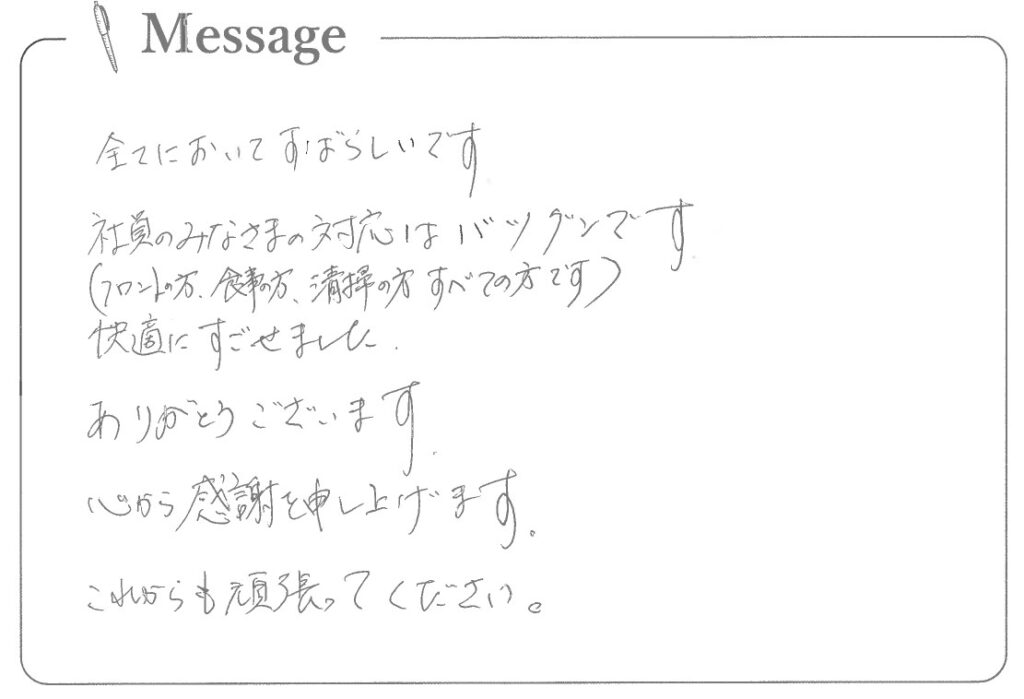 Message
全てにおいてすばらしいです
社員のみなさまの対応はバツグンです
(フロントの方、食事の方、清掃の方すべての方です)
快適にすごせました.
ありがとうございます.
心から感謝を申し上げます。
これからも頑張ってください。